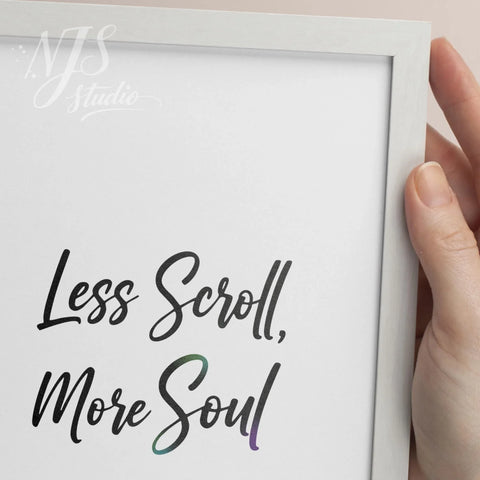 NJS
Studio
Less Scroll,
More Soul